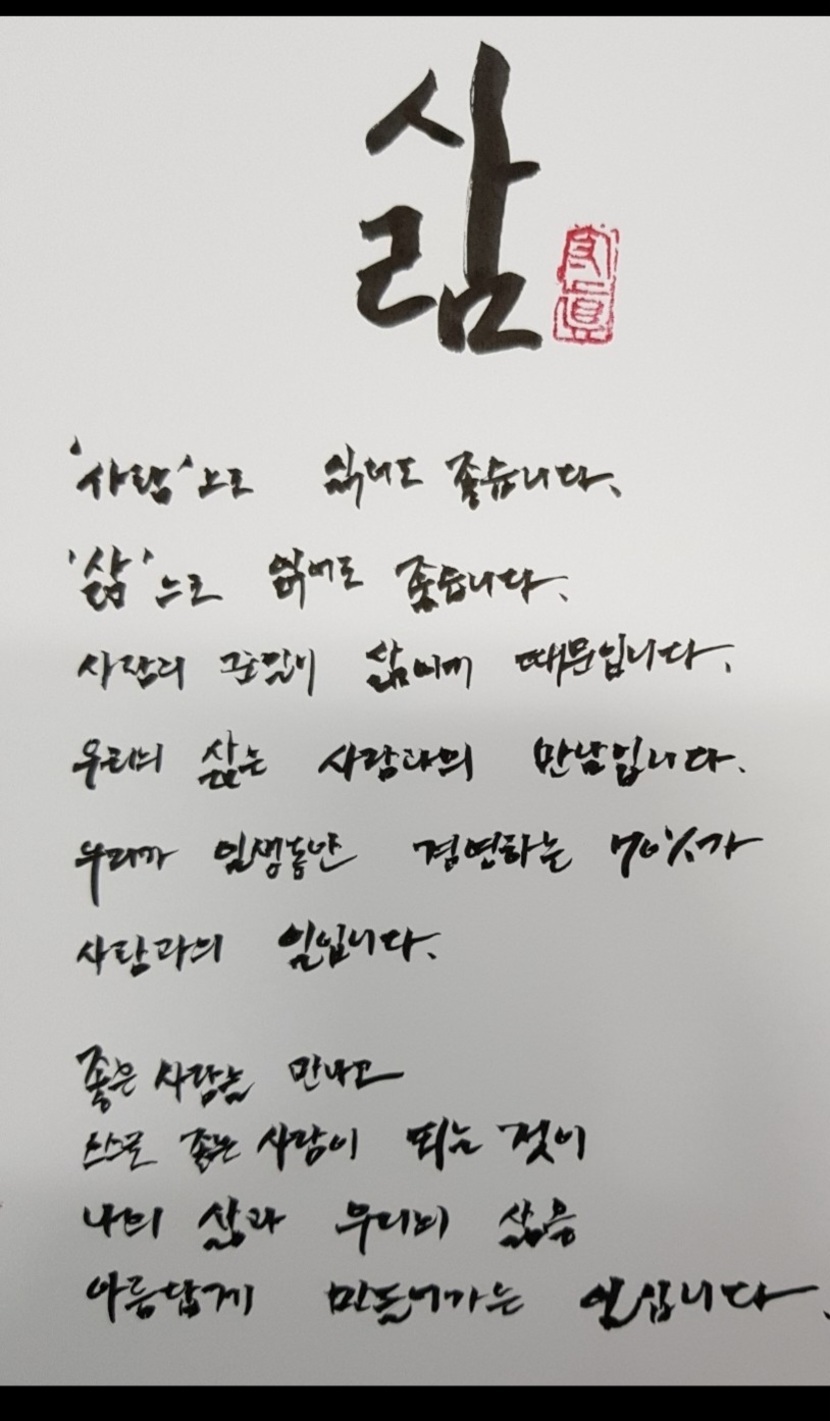 삶
'사람'으로 읽어도 좋습니다.
'삶'으로 읽어도 좋습니다.
사람의 준말이 삶이기 때문입니다.
우리의 삶은 사람과의 만남입니다.
우리가 일생동안 경영하는 70%가
사람과의 일입니다.
좋은 사람을 만나고
스스로 좋은 사람이 되는 것이
나의 삶과 우리의 삶을
아름답게 만들어가는 일입니다.